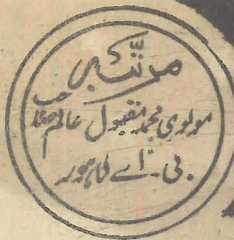 مرتبہ
مولوی محمد مقبول عالم صاحب
بی۔ اے لاہور